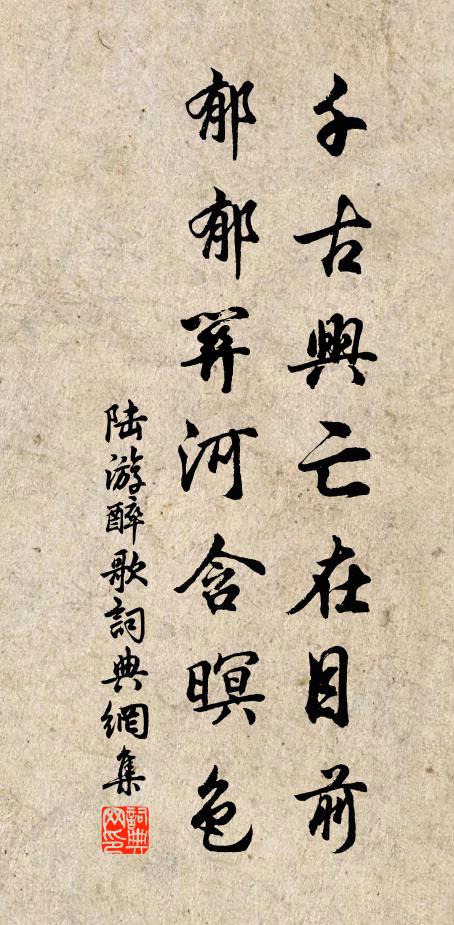 千古興亡在目前
郁郁關河含暝色
陸游醉歌詞典網集
詞典
网印